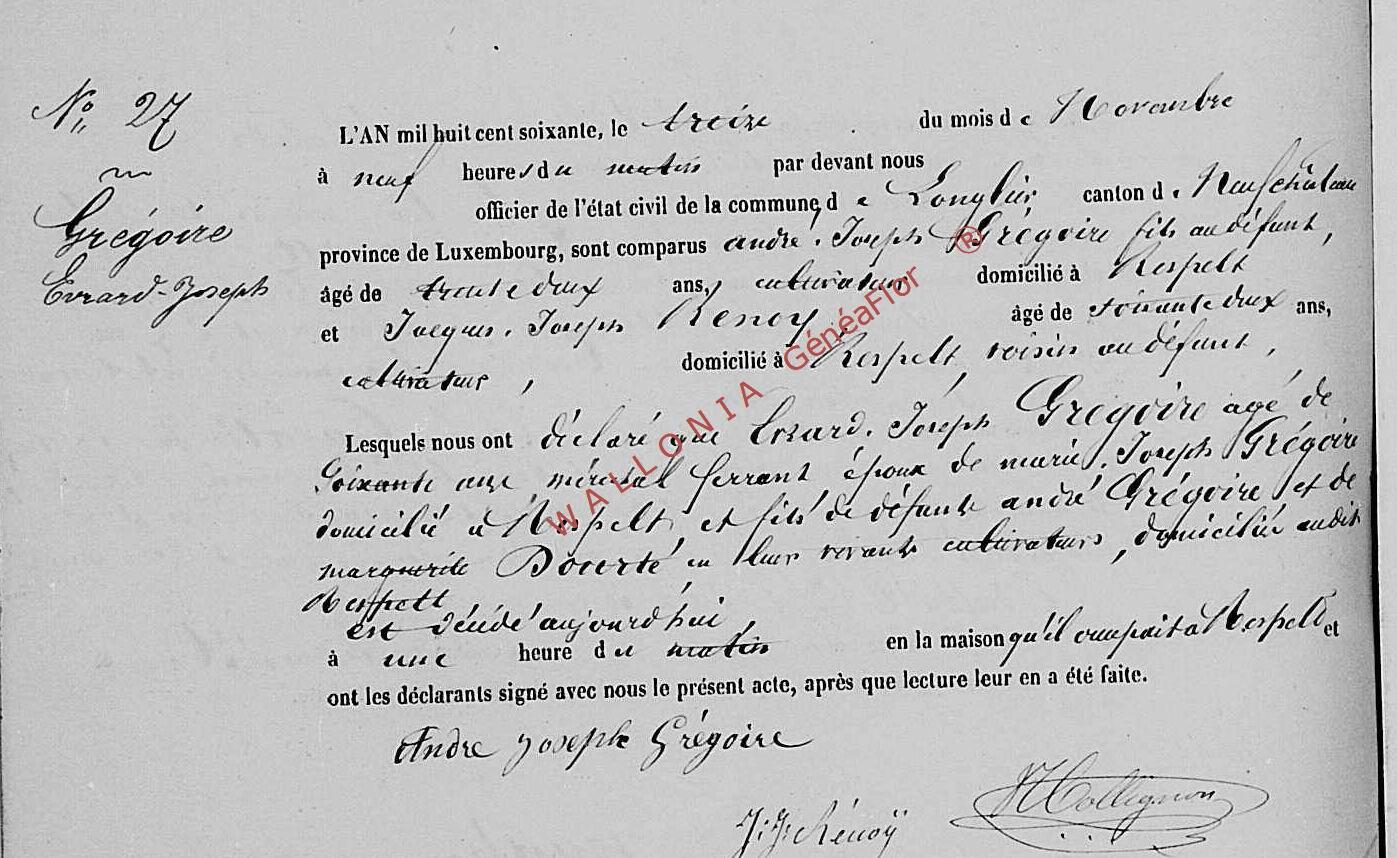 N° 27
Grégoire
Evrard-Joseph
L'AN mil huit cent soixante, le treize du mois de Novembre
à neuf heures du matin par devant nous
officier de l'état civil de la commune de Longlier canton de Neufchateau
province de Luxembourg, sont comparus andré-Joseph Grégoire fils au défunt,
âgé de trente deux ans, cultivateur domicilié à Respelt
et Jacques-Joseph Renoy âgé de soixante deux ans,
cultivateur, domicilié à Respelt, voisin au défunt,
Lesquels nous ont déclaré que Evrard-Joseph Grégoire agé de
Soixante onze maréchal ferrant époux de marie-Joseph Grégoire
domicilié à Respelt, et fils de défunts andré Grégoire et de
marguerite Dourté en leur vivants cultivateurs, domiciliés audit
Respelt
est décédé aujourd'hui
à une heure du matin en la maison qu'il occupait à Respelt et
ont les déclarants signé avec nous le présent acte, après que lecture leur en a été faite.
Andre joseph Grégoire
J: J: Rénoÿ Collignon
WALLONIA GénéaFlor ®